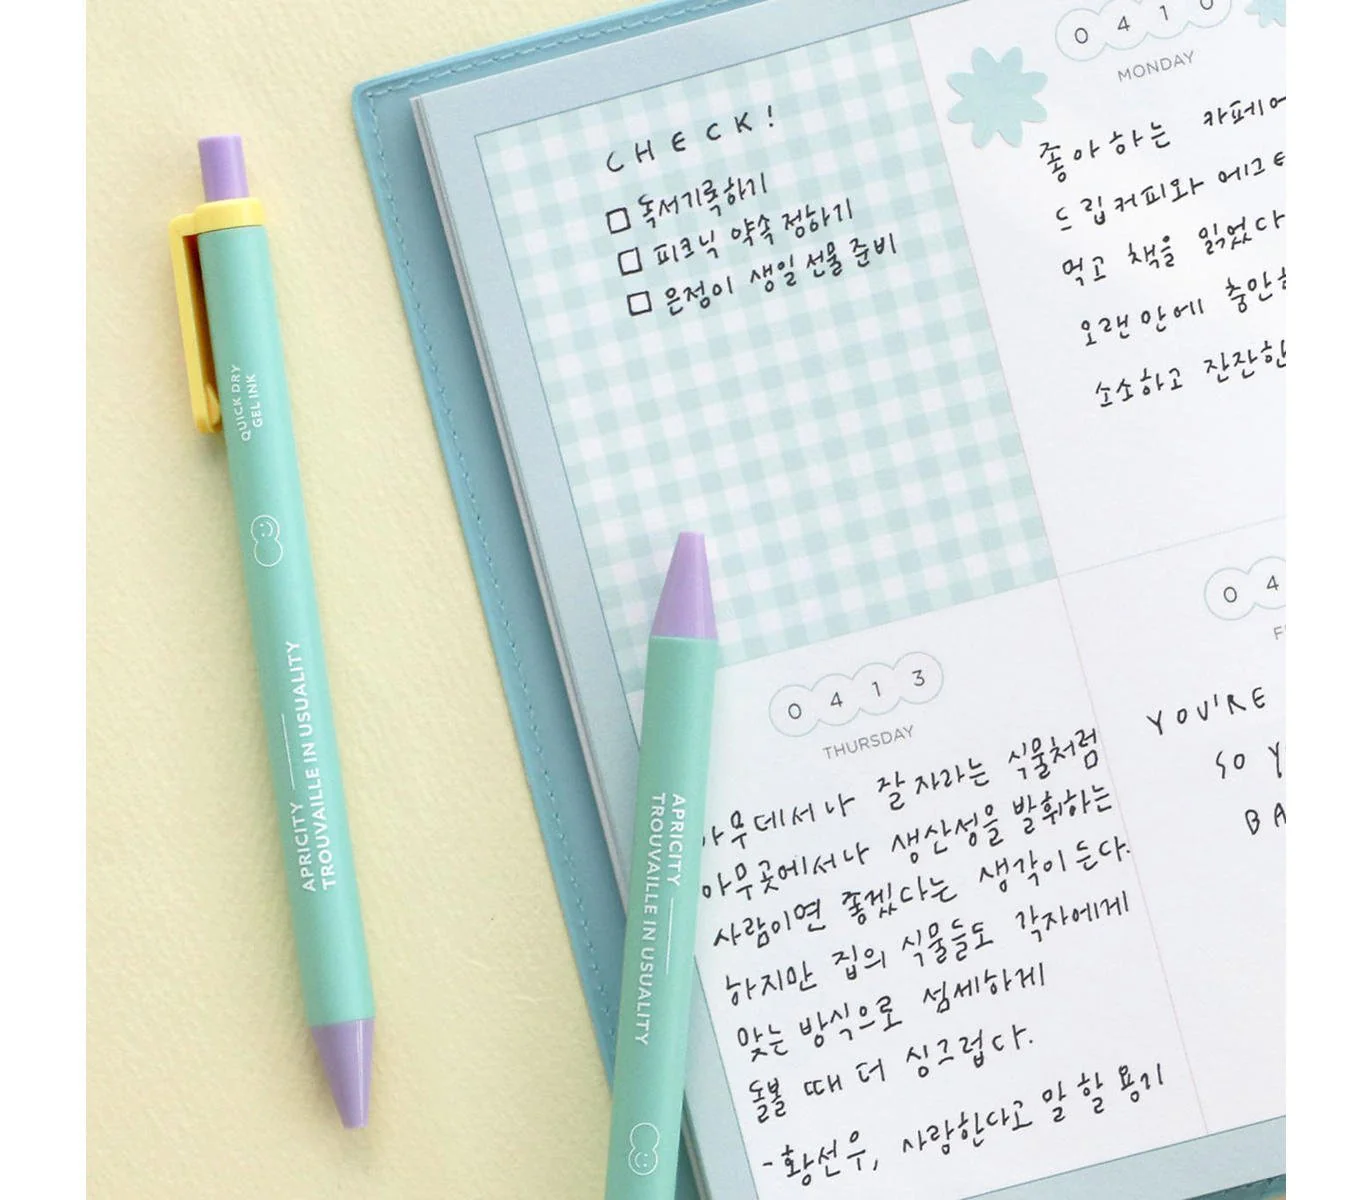 QUICK DRY
GEL INK
APRICITY
TROUVAILLE IN USUALITY
CHECK!
독서기록하기
피크닉 약속 정하기
은정이 생일 선물 준비
0410
MONDAY
좋아하는 카페에
드립커피와
먹고 책을 읽었다
오랜만에
소소하고 잔잔한
0413
THURSDAY
아무데서나 잘 자라는 식물처럼
아무곳에서나 생산성을 발휘하는
사람이면 좋겠다는 생각이 든다.
하지만 집의 식물들도 각자에게
맞는 방식으로 섬세하게
돌볼 때 더 싱그럽다.
-황선우, 사랑한다고 말할 용기
04
YOU'RE
SO
APRICITY
TROUVAILLE IN USUALITY